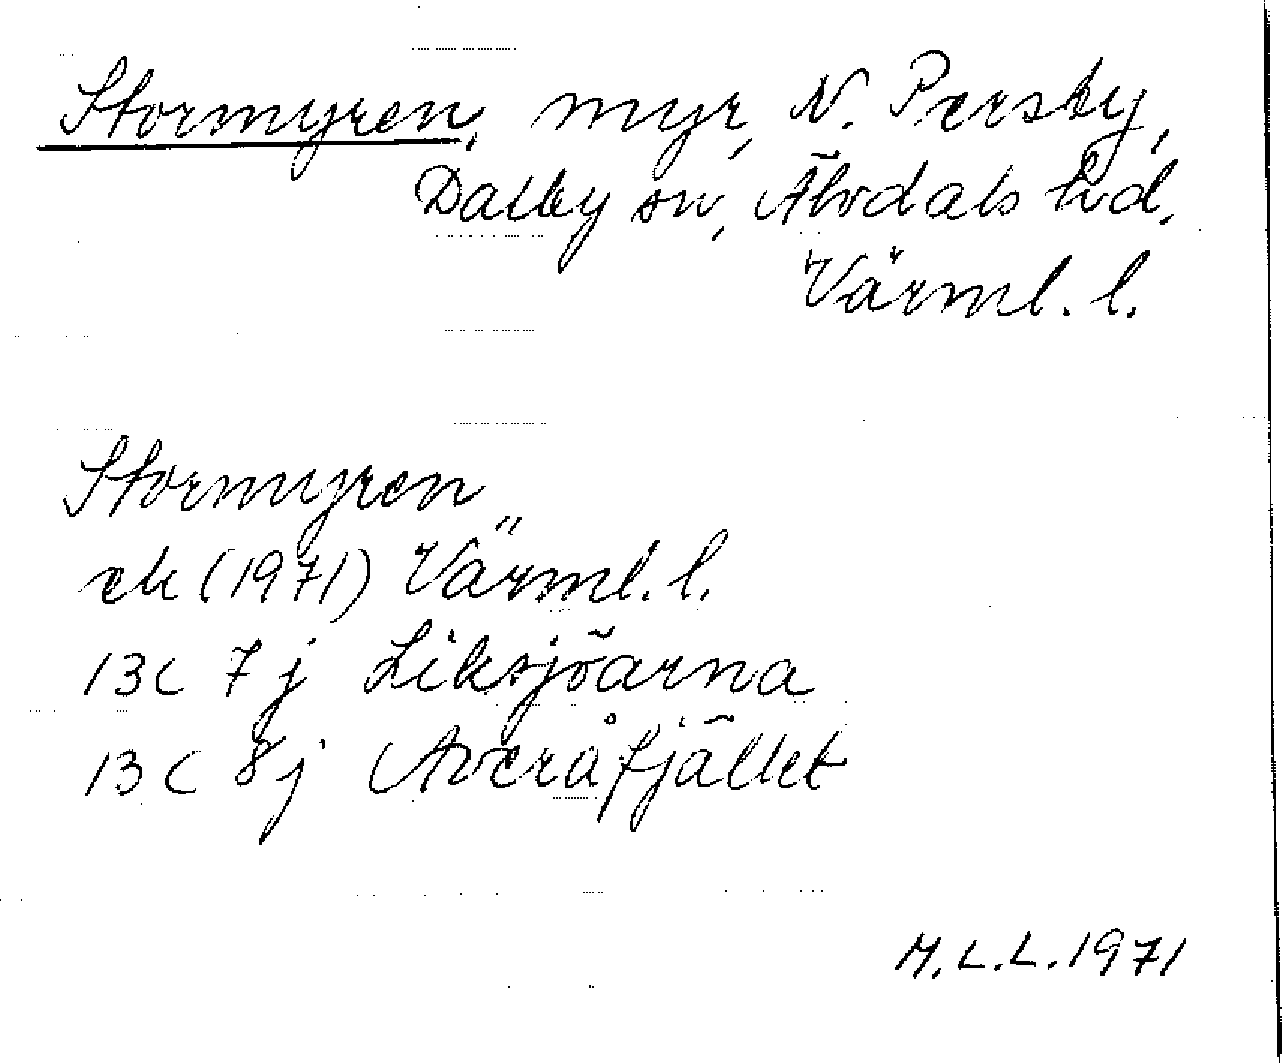 Stormyren, myr, N. Persby,
Dalby sn, Älvdals hd,
Värml. l.
Stormyren
ek (1971) Värml. l.
13C 7j Liksjöarna
13C 8j Averåfjället
M.L.L. 1971